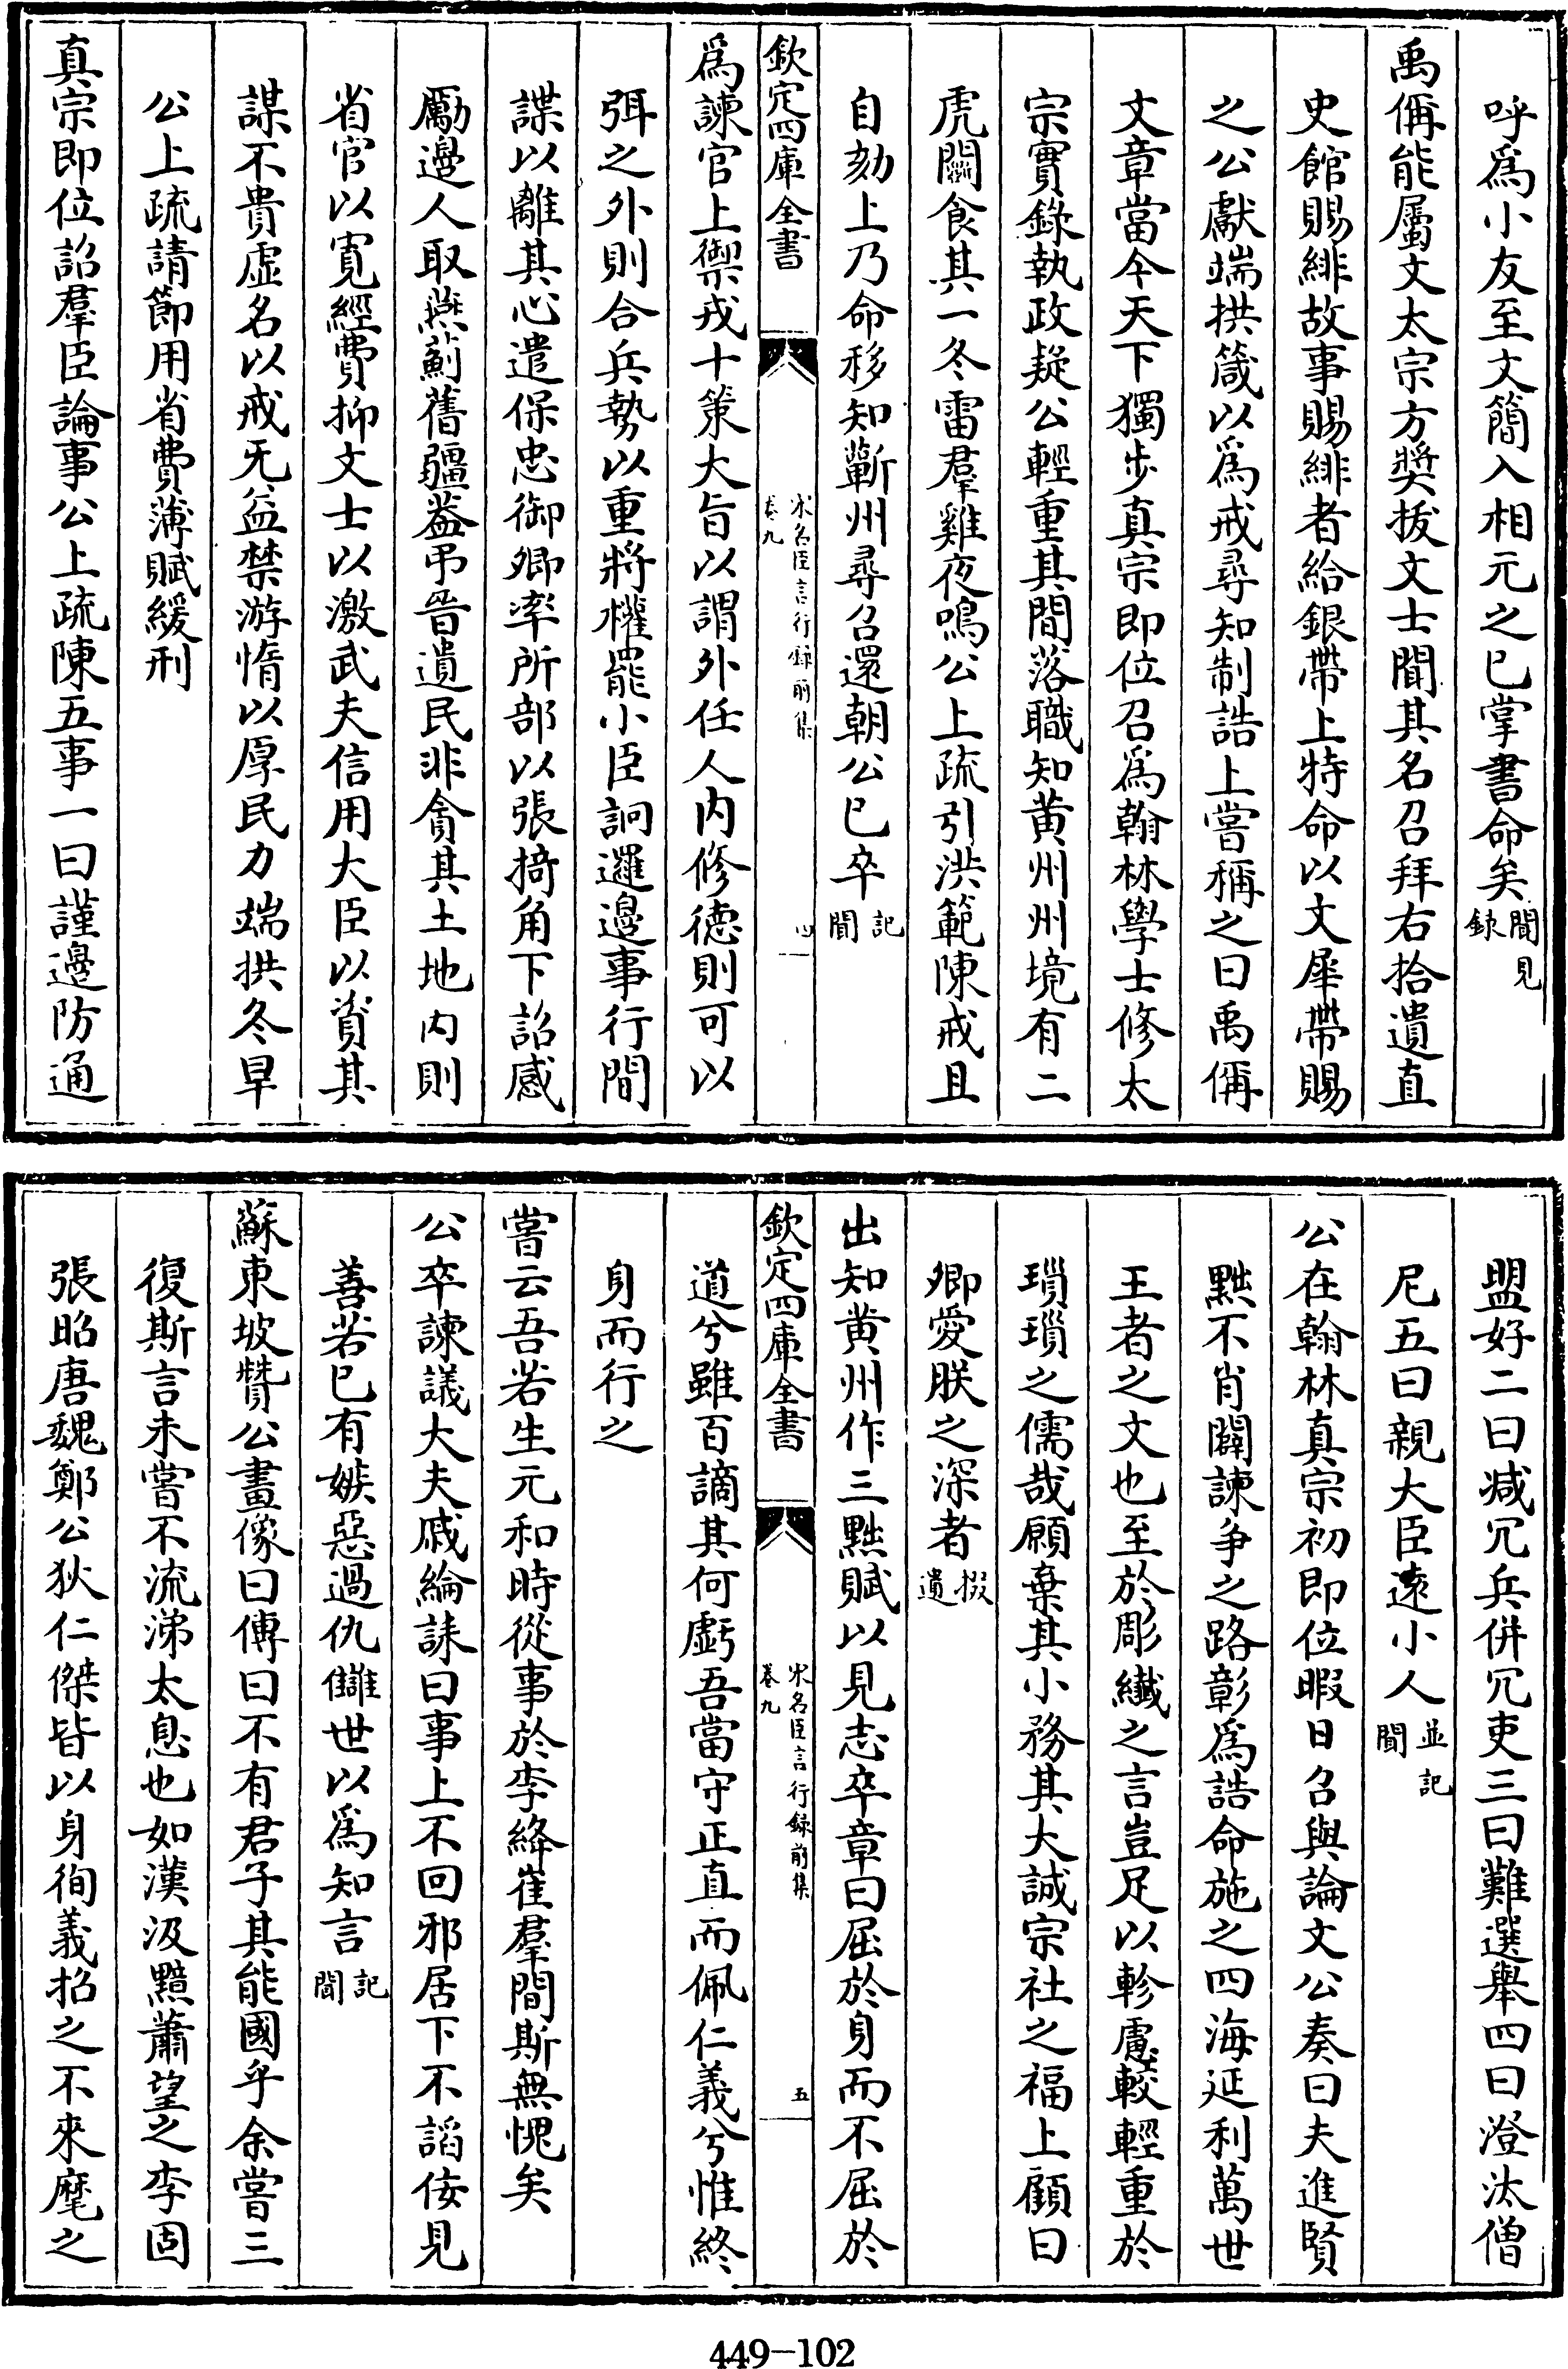 呼爲小友至文簡入相元之已掌書命矣聞見錄
禹偁能屬文太宗方奬拔文士聞其名召拜右拾遺直
史館賜緋故事賜緋者給銀帶上特命以文犀帶賜
之公獻端拱箴以爲戒尋知制誥上嘗稱之曰禹偁
文章當今天下獨步真宗即位召爲翰林學士修太
宗實錄執政疑公輕重其間落職知黄州州境有二
虎鬭食其一冬雷羣雞夜鳴公上疏引洪範陳戒且
自劾上乃命移知蘄州尋召還朝公已卒記聞
欽定四庫全書
宋名臣言行錄前集
卷九
四
爲諫官上禦戎十策大旨以謂外任人内修徳則可以
弭之外則合兵勢以重將權罷小臣詗邏邊事行間
諜以離其心遣保忠御卿率所部以張掎角下詔感
勵邊人取燕薊舊疆葢弔晉遺民非貪其土地内則
省官以寛經費抑文士以激武夫信用大臣以資其
謀不貴虚名以戒无益禁游惰以厚民力端拱冬旱
公上疏請節用省費薄賦緩刑
真宗即位詔羣臣論事公上疏陳五事一曰謹邊防通
盟好二曰减冗兵併冗吏三曰難選舉四曰澄汰僧
尼五曰親大臣逺小人並記聞
公在翰林真宗初即位暇日召與論文公奏曰夫進賢
黜不肖闢諫争之路彰爲誥命施之四海延利萬世
王者之文也至於彫纖之言豈足以軫慮較輕重於
瑣瑣之儒哉願棄其小務其大誠宗社之福上顧曰
卿愛朕之深者掇遺
出知黄州作三黜賦以見志卒章曰屈於身而不屈於
欽定四庫全書
宋名臣言行錄前集
卷九
五
道兮雖百謫其何虧吾當守正直而佩仁義兮惟終
身而行之
嘗云吾若生元和時從事於李絳崔羣間斯無愧矣
公卒諫議大夫戚綸誄曰事上不回邪居下不謟佞見
善若已有嫉惡過仇讎世以爲知言記聞
蘇東坡贊公畫像曰傳曰不有君子其能國乎余嘗三
復斯言未嘗不流涕太息也如漢汲黯蕭望之李固
張昭唐魏鄭公狄仁傑皆以身徇義招之不來麾之
449-102